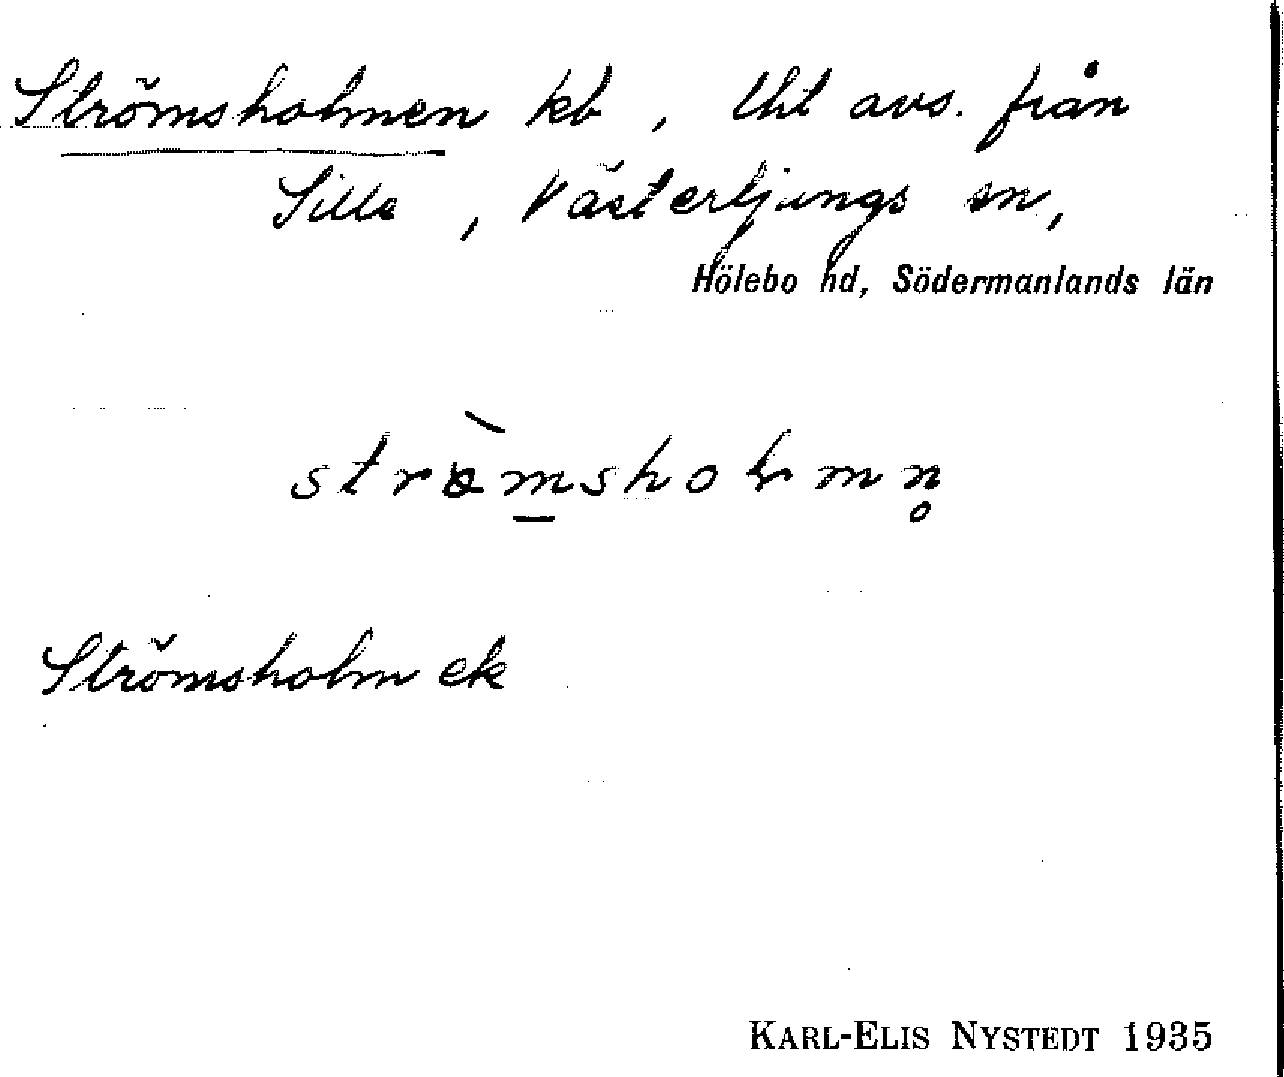 Strömsholmen kb, lht avs. från
Sille, Västerljungs sn,
Hölebo hd, Södermanlands län
strὼmsholmn̥
Strömsholm ek
KARL-ELIS NYSTEDT 1935